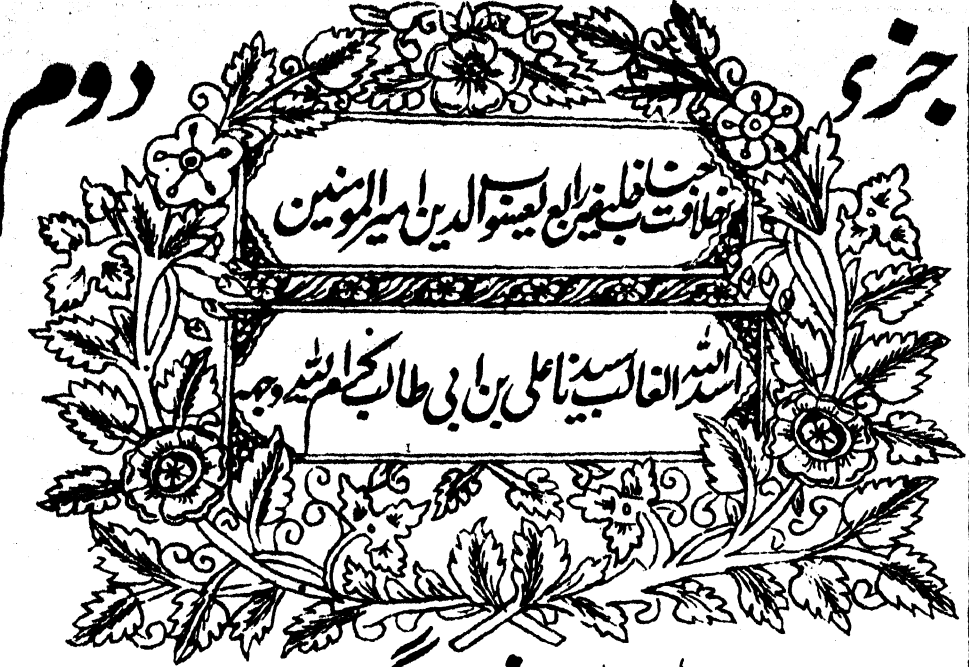 جزی دوم
خلافت جناب خلیفہ رابع یعسوب الدین امیر المومنین
اسد اللہ الغالب سیدنا علی بن ابی طالب کرم اللہ وجہہ